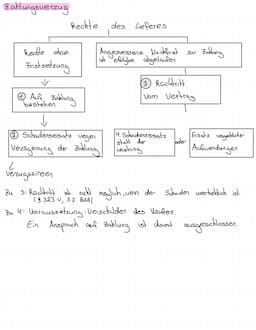 Zahlungsverzug
Rechte des Lieferes
Rechte ohne
Fristsetzung
Angemessene Nachfrist zur Zahlung
ist erfolglos abgelaufen
① Auf Zahlung
bestehen
③ Rücktritt
vom Vertrag
② Schadensersatz wegen
Verzögerung der Zahlung
4. Schadensersatz
statt der
Leistung
oder
Ersatz vergeblicher
Aufwendungen
Verzugszinsen
Zu 3: Rücktritt ist nicht möglich, wenn der Schaden unerheblich ist
(§ 323 V, S.2 BGB)
Zu 4: Voraussetzung: Verschulden des Käufers.
Ein Anspruch auf Zahlung ist damit ausgeschlossen.